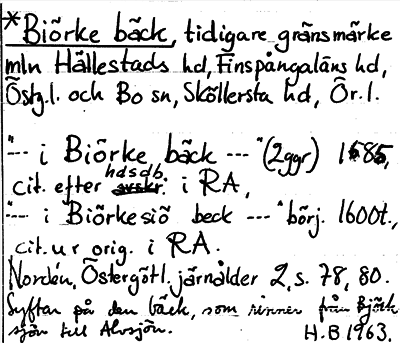 *Biörke bäck, tidigare gränsmärke
mln Hällestads hd, Finspångaläns hd,
Östg.l. och Bo sn, Sköllersta hd, Ör.l.
"--- i Biörke bäck --- "(2ggr) 1685,
hdsdb.
cit. efter avskr. i RA,
"--- i Biörkesiö beck --- " börj. 1600t.,
cit. ur orig. i RA.
Nordén, Östergötl. järnålder 2, s. 78, 80.
Syftar på den bäck, som rinner från Björk-
sjön till Alvsjön. H.B 1963.